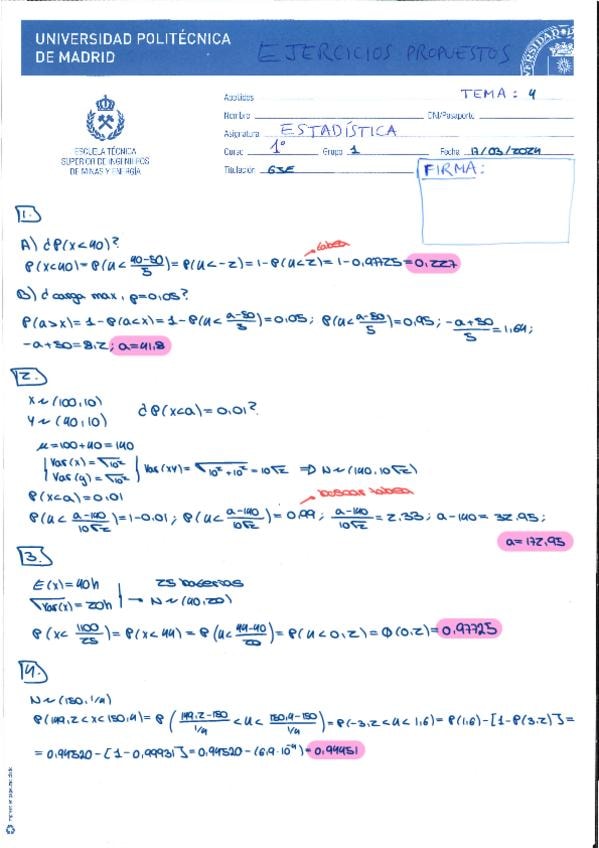 UNIVERSIDAD POLITÉCNICA
DE MADRID
EJERCICIOS PROPUESTOS
ESCUELA TÉCNICA
SUPERIOR DE INGENIEROS
DE MINAS Y ENERGÍA
Apellidos
TEMA: 4
Nombre
DNI/Pasaporte
Asignatura ESTADÍSTICA
Curso 1º Grupo 1 Fecha 17/03/2024
Titulación GIE
FIRMA:
1.
A) ¿P(x<40)?
tabla
P(x<40)=P(u<(40-50)/5)=P(u<-2)=1-P(u<2)=1-0,97725=0,227
B) ¿carga max, p=0,05?
P(a>x)=1-P(a<x)=1-P(u<(a-50)/5)=0,05; P(u<(a-50)/5)=0,95; (-a+50)/5=1,64;
-a+50=8,2; a=41,8
2.
X~(100,10)
Y~(40,10)
¿P(x<a)=0,01?
μ=100+40=140
Var(x)=√10²
Var(y)=√10²
Var(xy)=√10²+10²=10√2 ⇒ N~(140,10√2)
P(x<a)=0,01
buscar tabla
P(u<(a-140)/10√2)=1-0,01; P(u<(a-140)/10√2)=0,99; (a-140)/10√2=2,33; a-140=32,95;
a=172,95
3.
E(x)=40h
25 baterías
√Var(x)=20h → N~(40,20)
P(x<1100/25)=P(x<44)=P(u<(44-40)/20)=P(u<0,2)=Φ(0,2)=0,97725
4.
N~(150,1/4)
P(149,2<x<150,4)=P((149,2-150)/1/4<u<(150,4-150)/1/4)=P(-3,2<u<1,6)=P(1,6)-[1-P(3,2)]=
=0,94520-[1-0,99931]=0,94520-(6,9·10⁻⁴)=0,94451